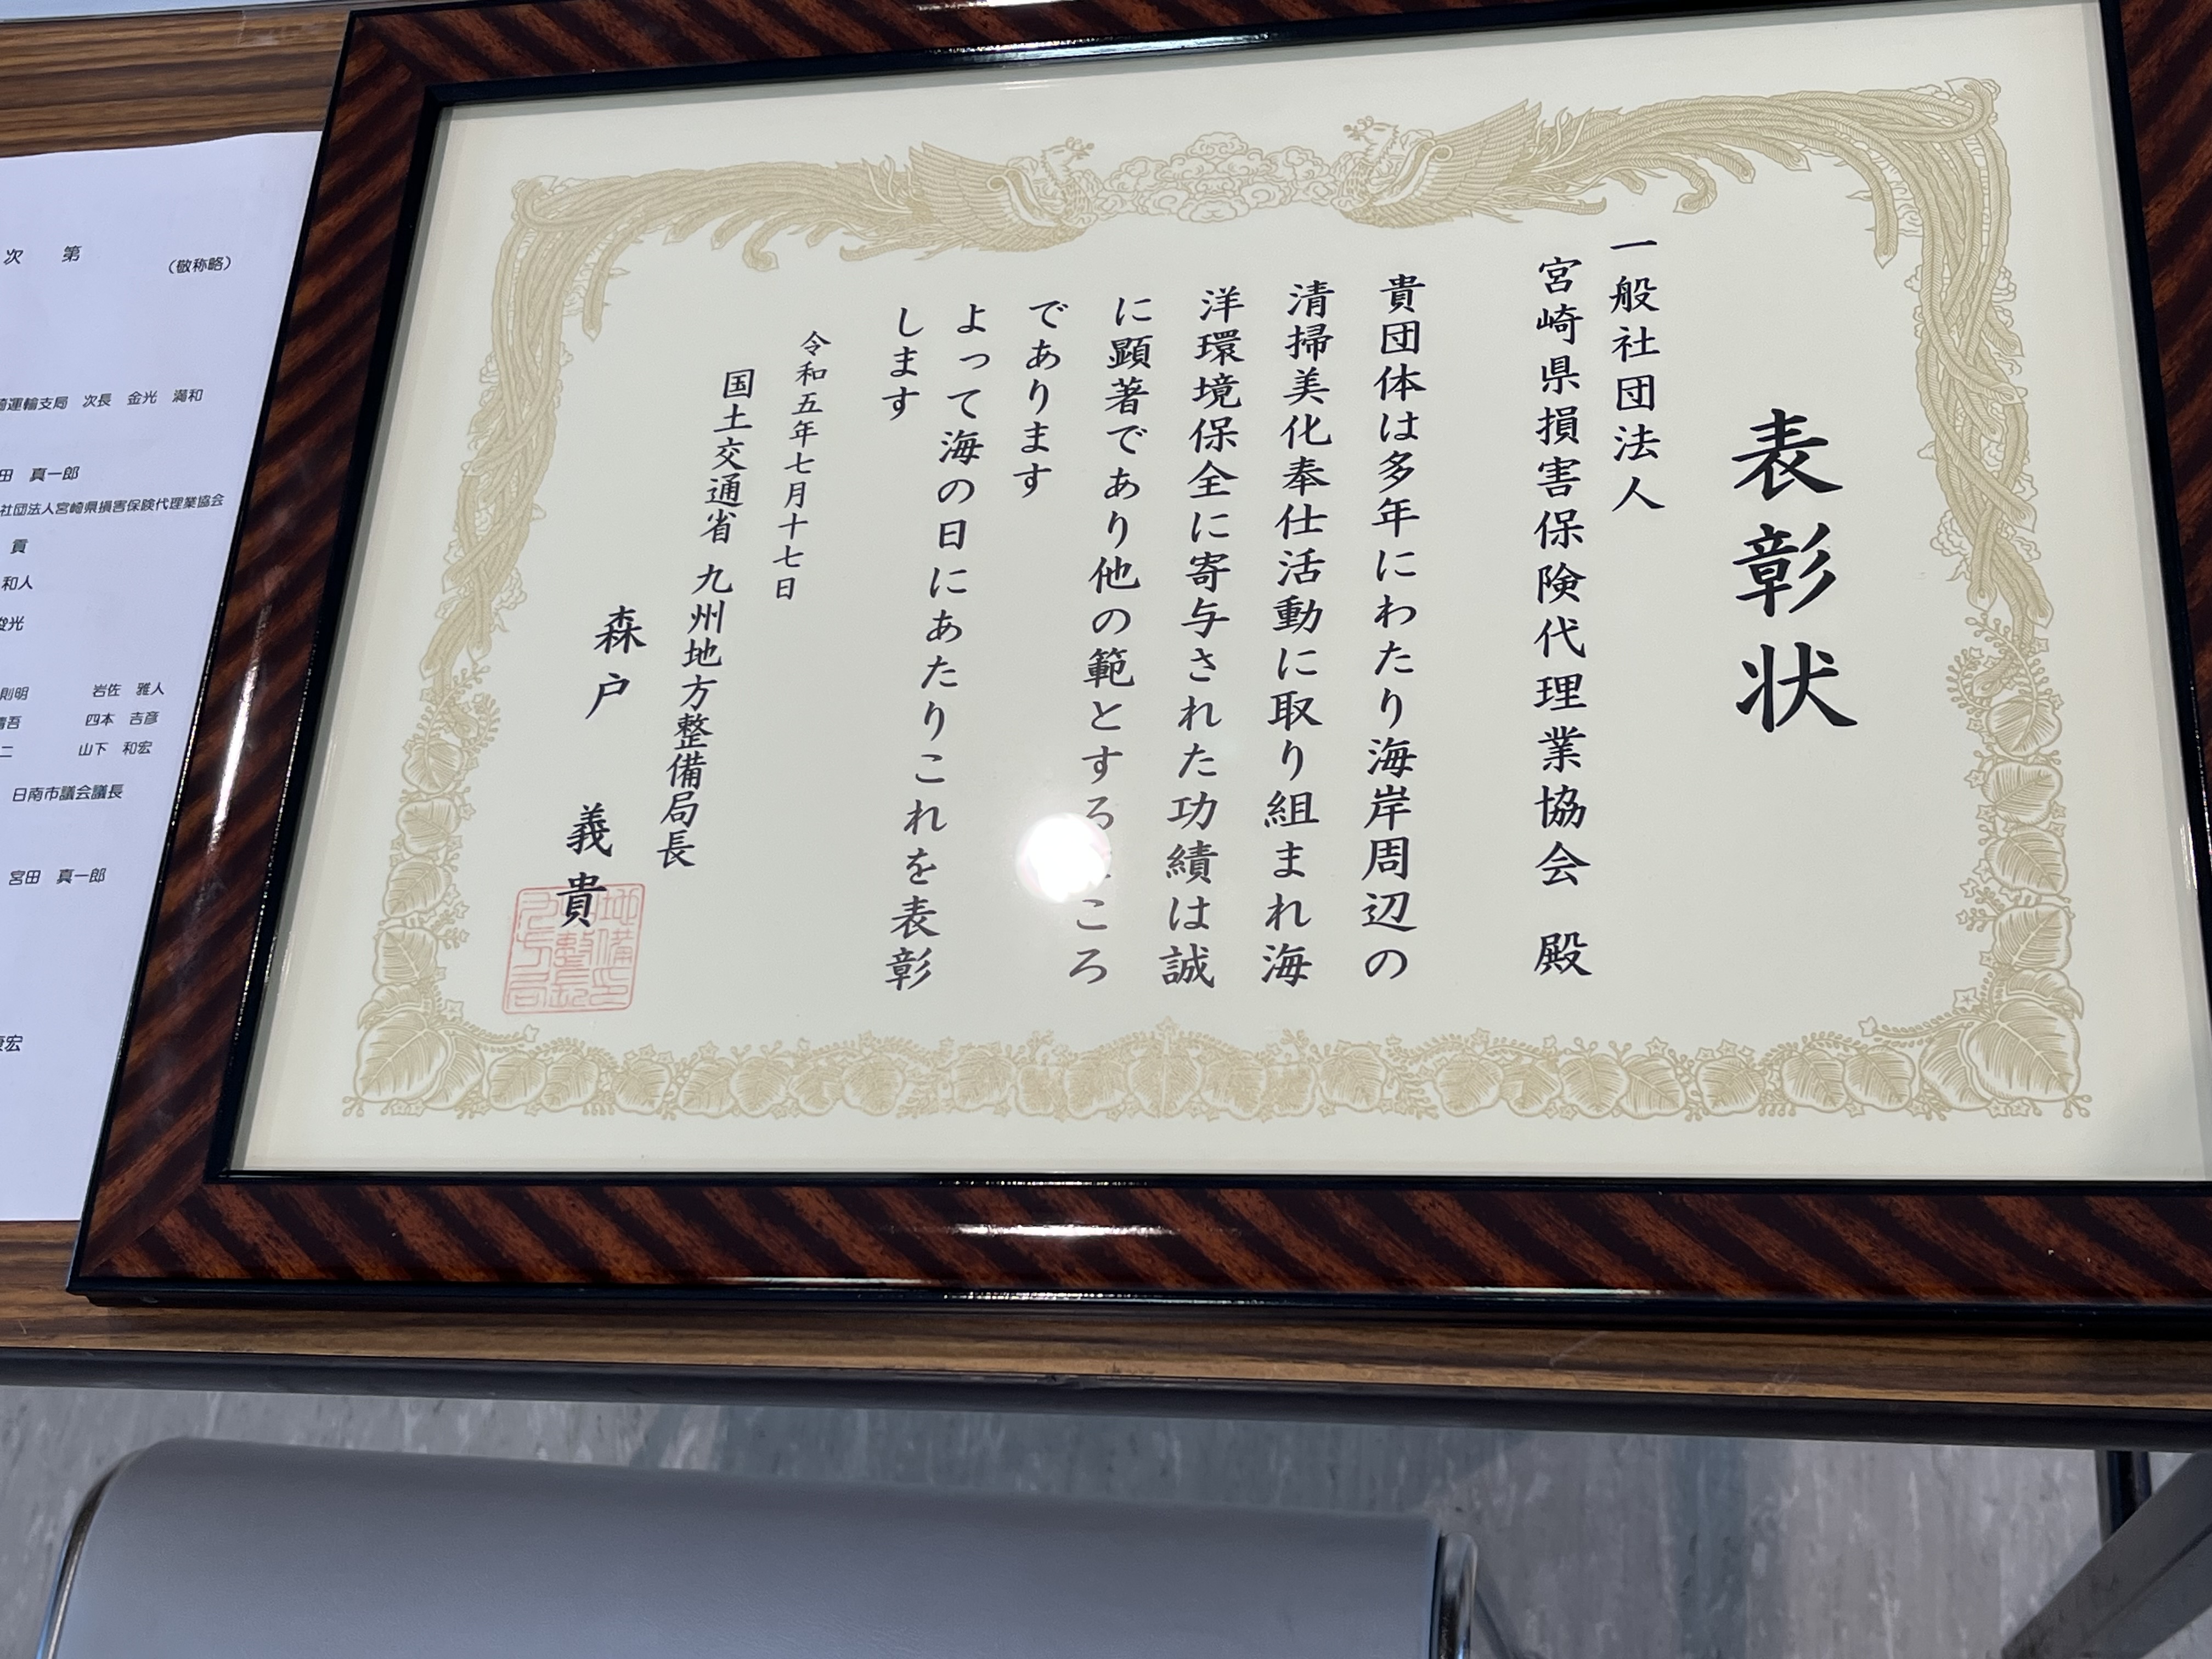 表彰状
一般社団法人
宮崎県損害保険代理業協会 殿
貴団体は多年にわたり海岸周辺の
清掃美化奉仕活動に取り組まれ海
洋環境保全に寄与された功績は誠
に顕著であり他の範とするところ
であります
よって海の日にあたりこれを表彰
します
令和五年七月十七日
国土交通省 九州地方整備局長
森戸 義貴
次 第
(敬称略)
運輸支局 次長 金光 満和
田 真一郎
社団法人宮崎県損害保険代理業協会
貢
和人
俊光
則明 岩佐 雅人
吾 四本 吉彦
二 山下 和宏
日南市議会議長
宮田 真一郎
宏